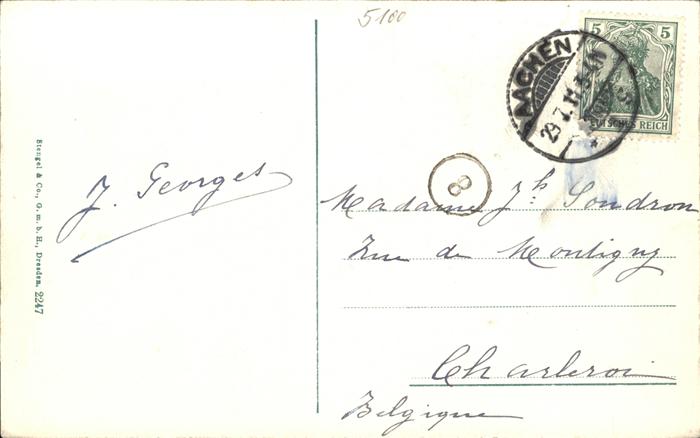 5100
5 5
DEUTSCHES REICH
AACHEN
29.7.11.
8
J. Georges
Madame Jh. Sondron
Rue de Montigny
Charleroi
Belgique
Stengel & Co., G. m. b. H., Dresden. 2247